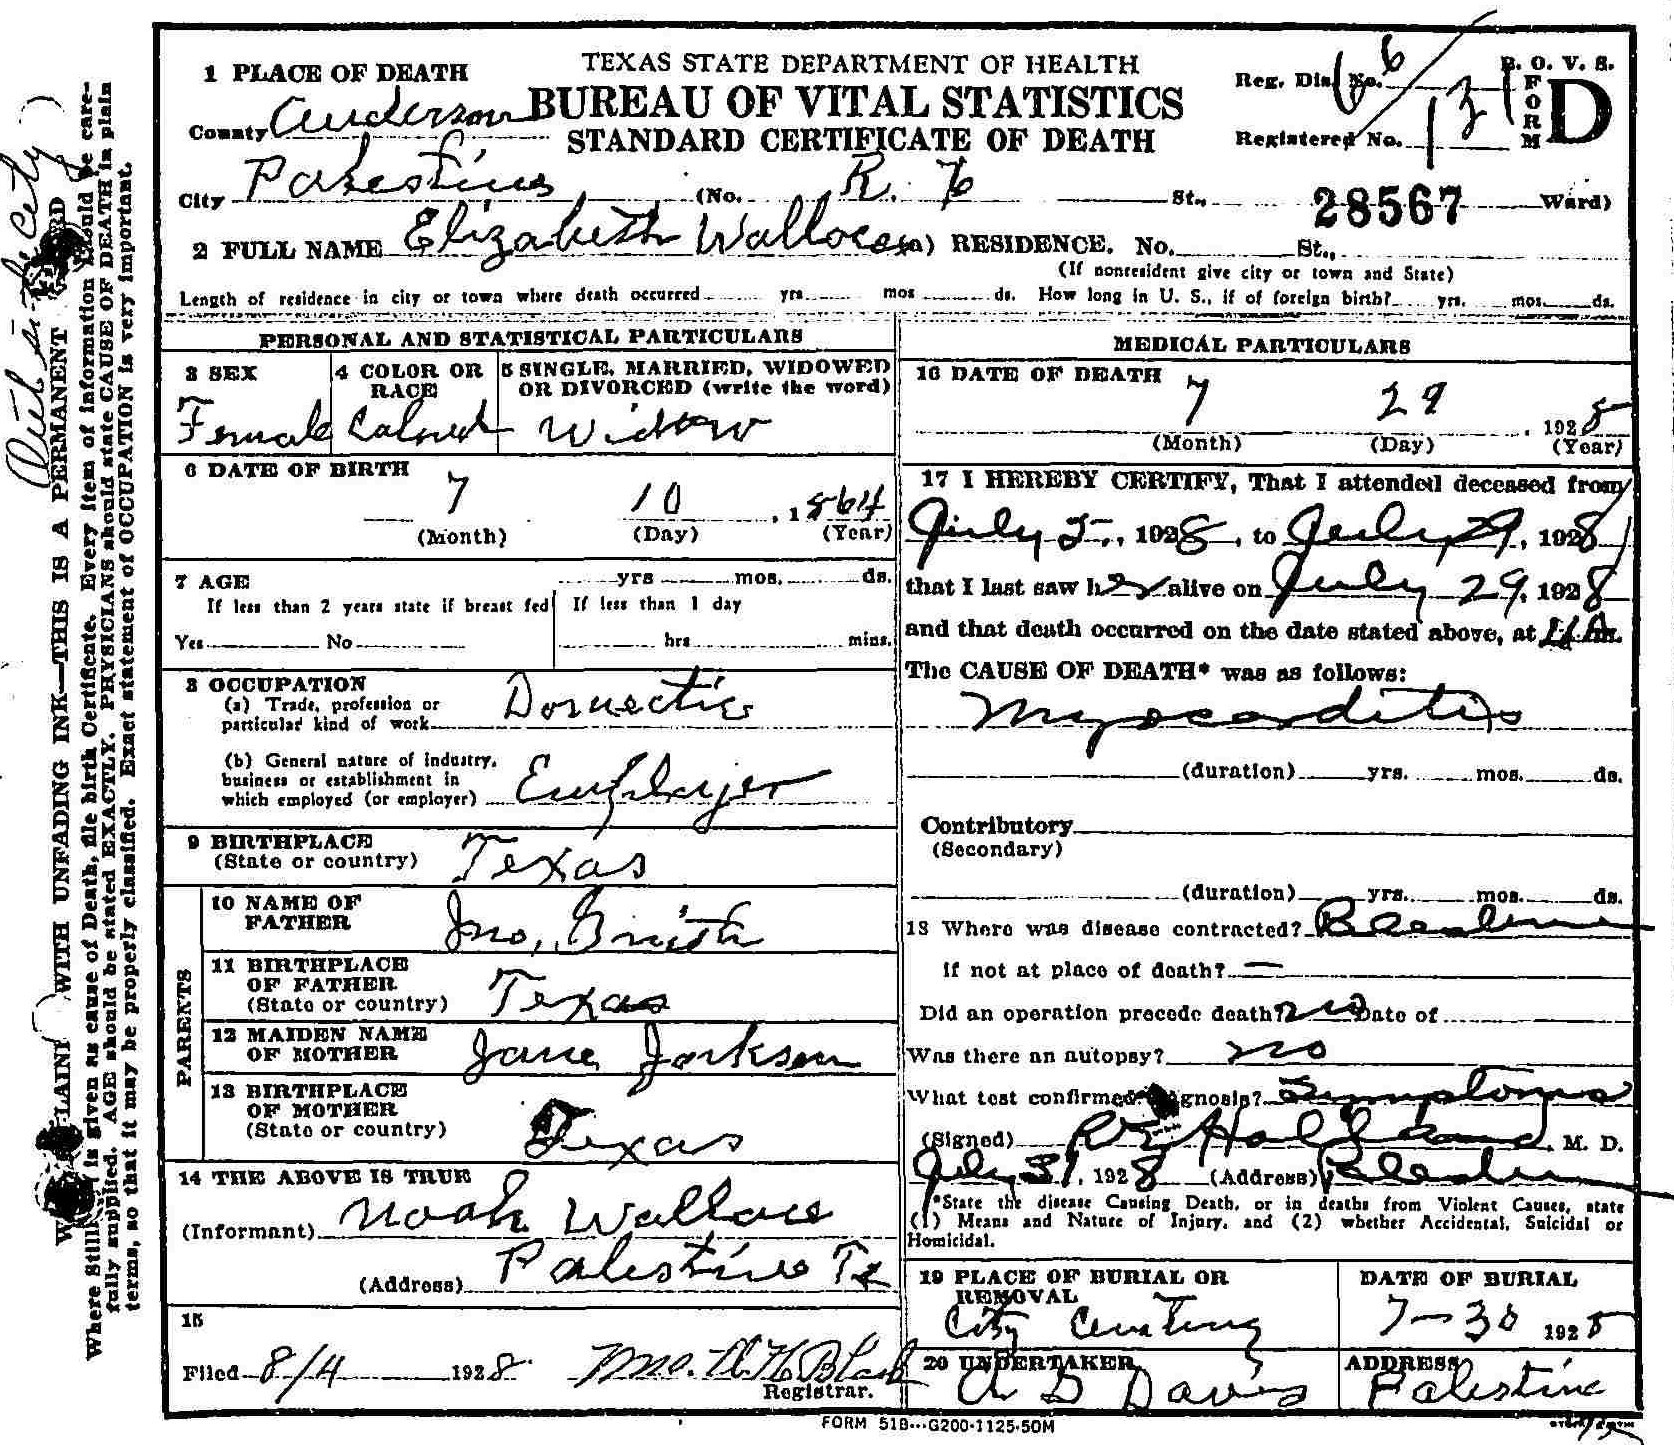 TEXAS STATE DEPARTMENT OF HEALTH
BUREAU OF VITAL STATISTICS
STANDARD CERTIFICATE OF DEATH
B. O. V. S.
FORM D
Reg. Dis. No. 6
Registered No. 131
1 PLACE OF DEATH
County Anderson
City Palestine (No. R. 6 St., 28567 Ward)
2 FULL NAME Elizabeth Wallace (a) RESIDENCE. No. St.,
(If nonresident give city or town and State)
Length of residence in city or town where death occurred yrs. mos. ds. How long in U. S., if of foreign birth? yrs. mos. ds.
PERSONAL AND STATISTICAL PARTICULARS
3 SEX
Female
4 COLOR OR RACE
Colored
5 SINGLE, MARRIED, WIDOWED OR DIVORCED (write the word)
Widow
6 DATE OF BIRTH
7 10, 1864
(Month) (Day) (Year)
7 AGE yrs mos. ds.
If less than 2 years state if breast fed
Yes No
If less than 1 day
hrs mins.
8 OCCUPATION
(a) Trade, profession or
particular kind of work Domestic
(b) General nature of industry,
business or establishment in
which employed (or employer) Employer
9 BIRTHPLACE
(State or country) Texas
PARENTS
10 NAME OF FATHER Jno.
11 BIRTHPLACE OF FATHER
(State or country) Texas
12 MAIDEN NAME OF MOTHER Jane Jackson
13 BIRTHPLACE OF MOTHER
(State or country) Texas
14 THE ABOVE IS TRUE
(Informant) Noah Wallace
(Address) Palestine Tx
15
Filed 8/4 1928 W. H. Black
Registrar.
MEDICAL PARTICULARS
16 DATE OF DEATH
7 29, 1928
(Month) (Day) (Year)
17 I HEREBY CERTIFY, That I attended deceased from
July 5., 1928, to July 29, 1928
that I last saw her alive on July 29, 1928
and that death occurred on the date stated above, at m.
The CAUSE OF DEATH* was as follows:
Myocarditis
(duration) yrs. mos. ds.
Contributory
(Secondary)
(duration) yrs. mos. ds.
18 Where was disease contracted? Palestine
if not at place of death? —
Did an operation precede death? no Date of
Was there an autopsy? no
What test confirmed diagnosis? Symptoms
(Signed) M. D.
July 31, 1928 (Address) Palestine
*State the disease Causing Death, or in deaths from Violent Causes, state
(1) Means and Nature of Injury, and (2) whether Accidental, Suicidal or
Homicidal.
19 PLACE OF BURIAL OR REMOVAL
City Cemetery
DATE OF BURIAL
7-30 1928
20 UNDERTAKER
A D Davis
ADDRESS
Palestine
FORM 51B---G200-1125-50M
WITH UNFADING INK—THIS IS A PERMANENT
Where Still is given as cause of Death, file birth Certificate. Every item of information should be care-
fully supplied. AGE should be stated EXACTLY. PHYSICIANS should state CAUSE OF DEATH in plain
terms, so that it may be properly classified. Exact statement of OCCUPATION is very important.